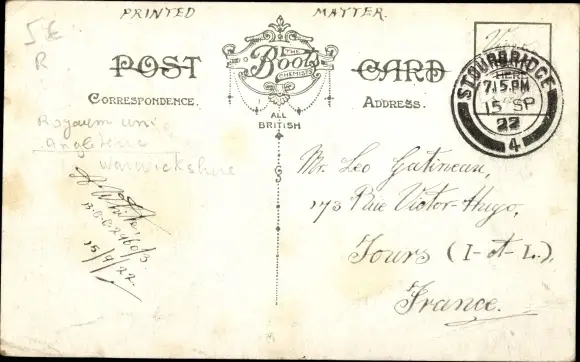 PRINTED MATTER.
5€
R
POST CARD
THE
Boots
CHEMISTS
CORRESPONDENCE.
ADDRESS.
ALL
BRITISH
STOURBRIDGE
7.15 PM
15 SP
22
4
HERE
Royaum uni
Angleterre
Warwickshire
15/9/22.
Mr. Leo Gatineau,
173 Rue Victor-Hugo,
Tours (I-et-L.),
France.